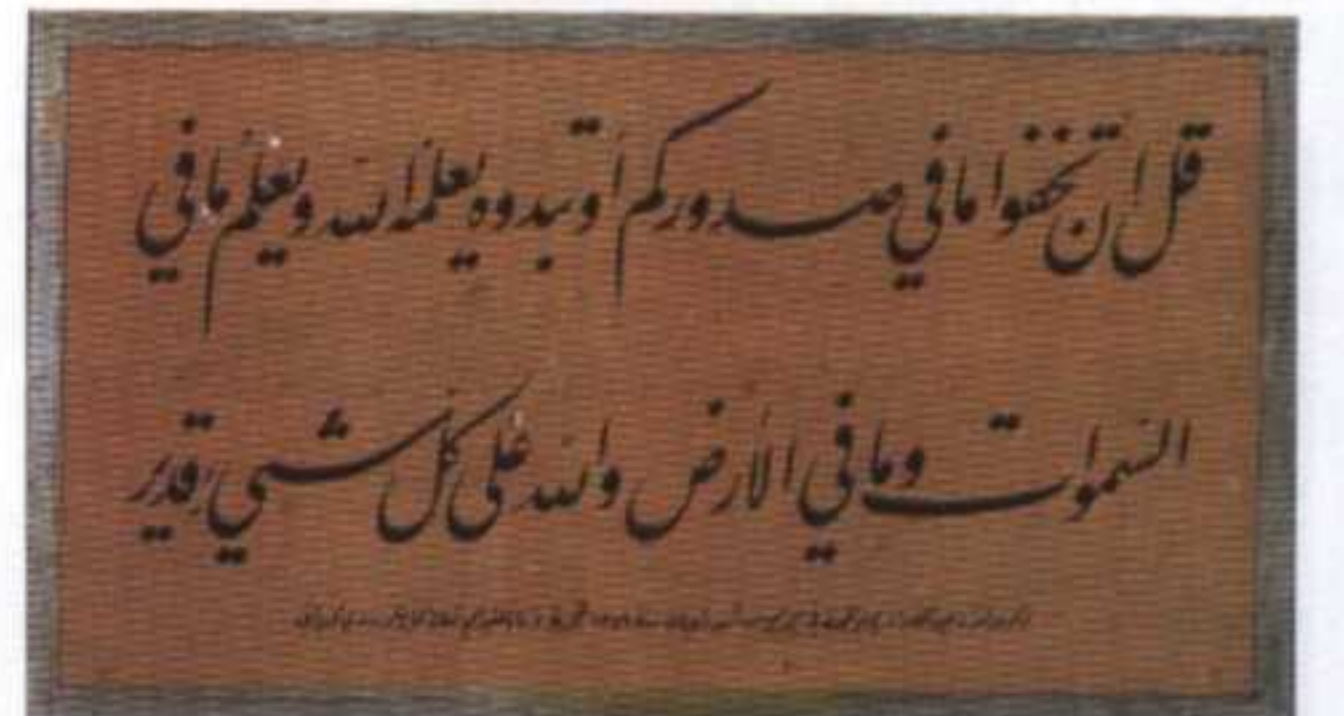 قل إن تخفوا ما في صدوركم أو تبدوه يعلمه الله ويعلم ما في
السموات وما في الأرض والله على كل شيء قدير